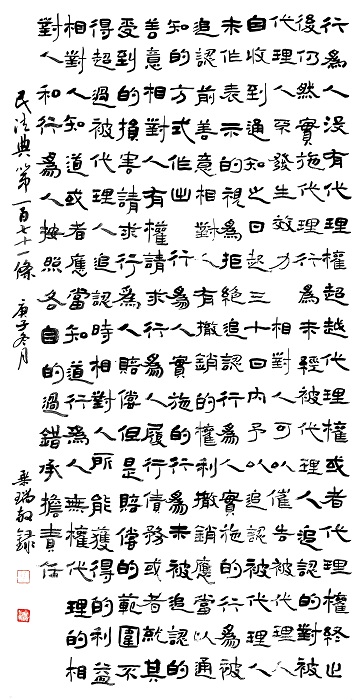 行為人没有代理權超越代理權或者代理權終止
後仍然實施代理行為未經被代理人追認的對被
代理人不發生效力 相對人可以催告被代理人
自收到通知之日起三十日内予以追認被代理人
未作表示的視為拒絶追認行為人實施的行為被
追認前善意相對人有撤銷的權利撤銷應當以通
知的方式作出 行為人實施的行為未被追認的
善意的相對人有權請求行為人履行債務或者就其
受到的損害請求行為人賠償但是賠償的範圍不
得超過被代理人追認時相對人所能獲得的利益
相對人知道或者應當知道行為人無權代理的相
對人和行為人按照各自的過錯承擔責任
民法典第一百七十一條 庚子冬月 瑞敏録